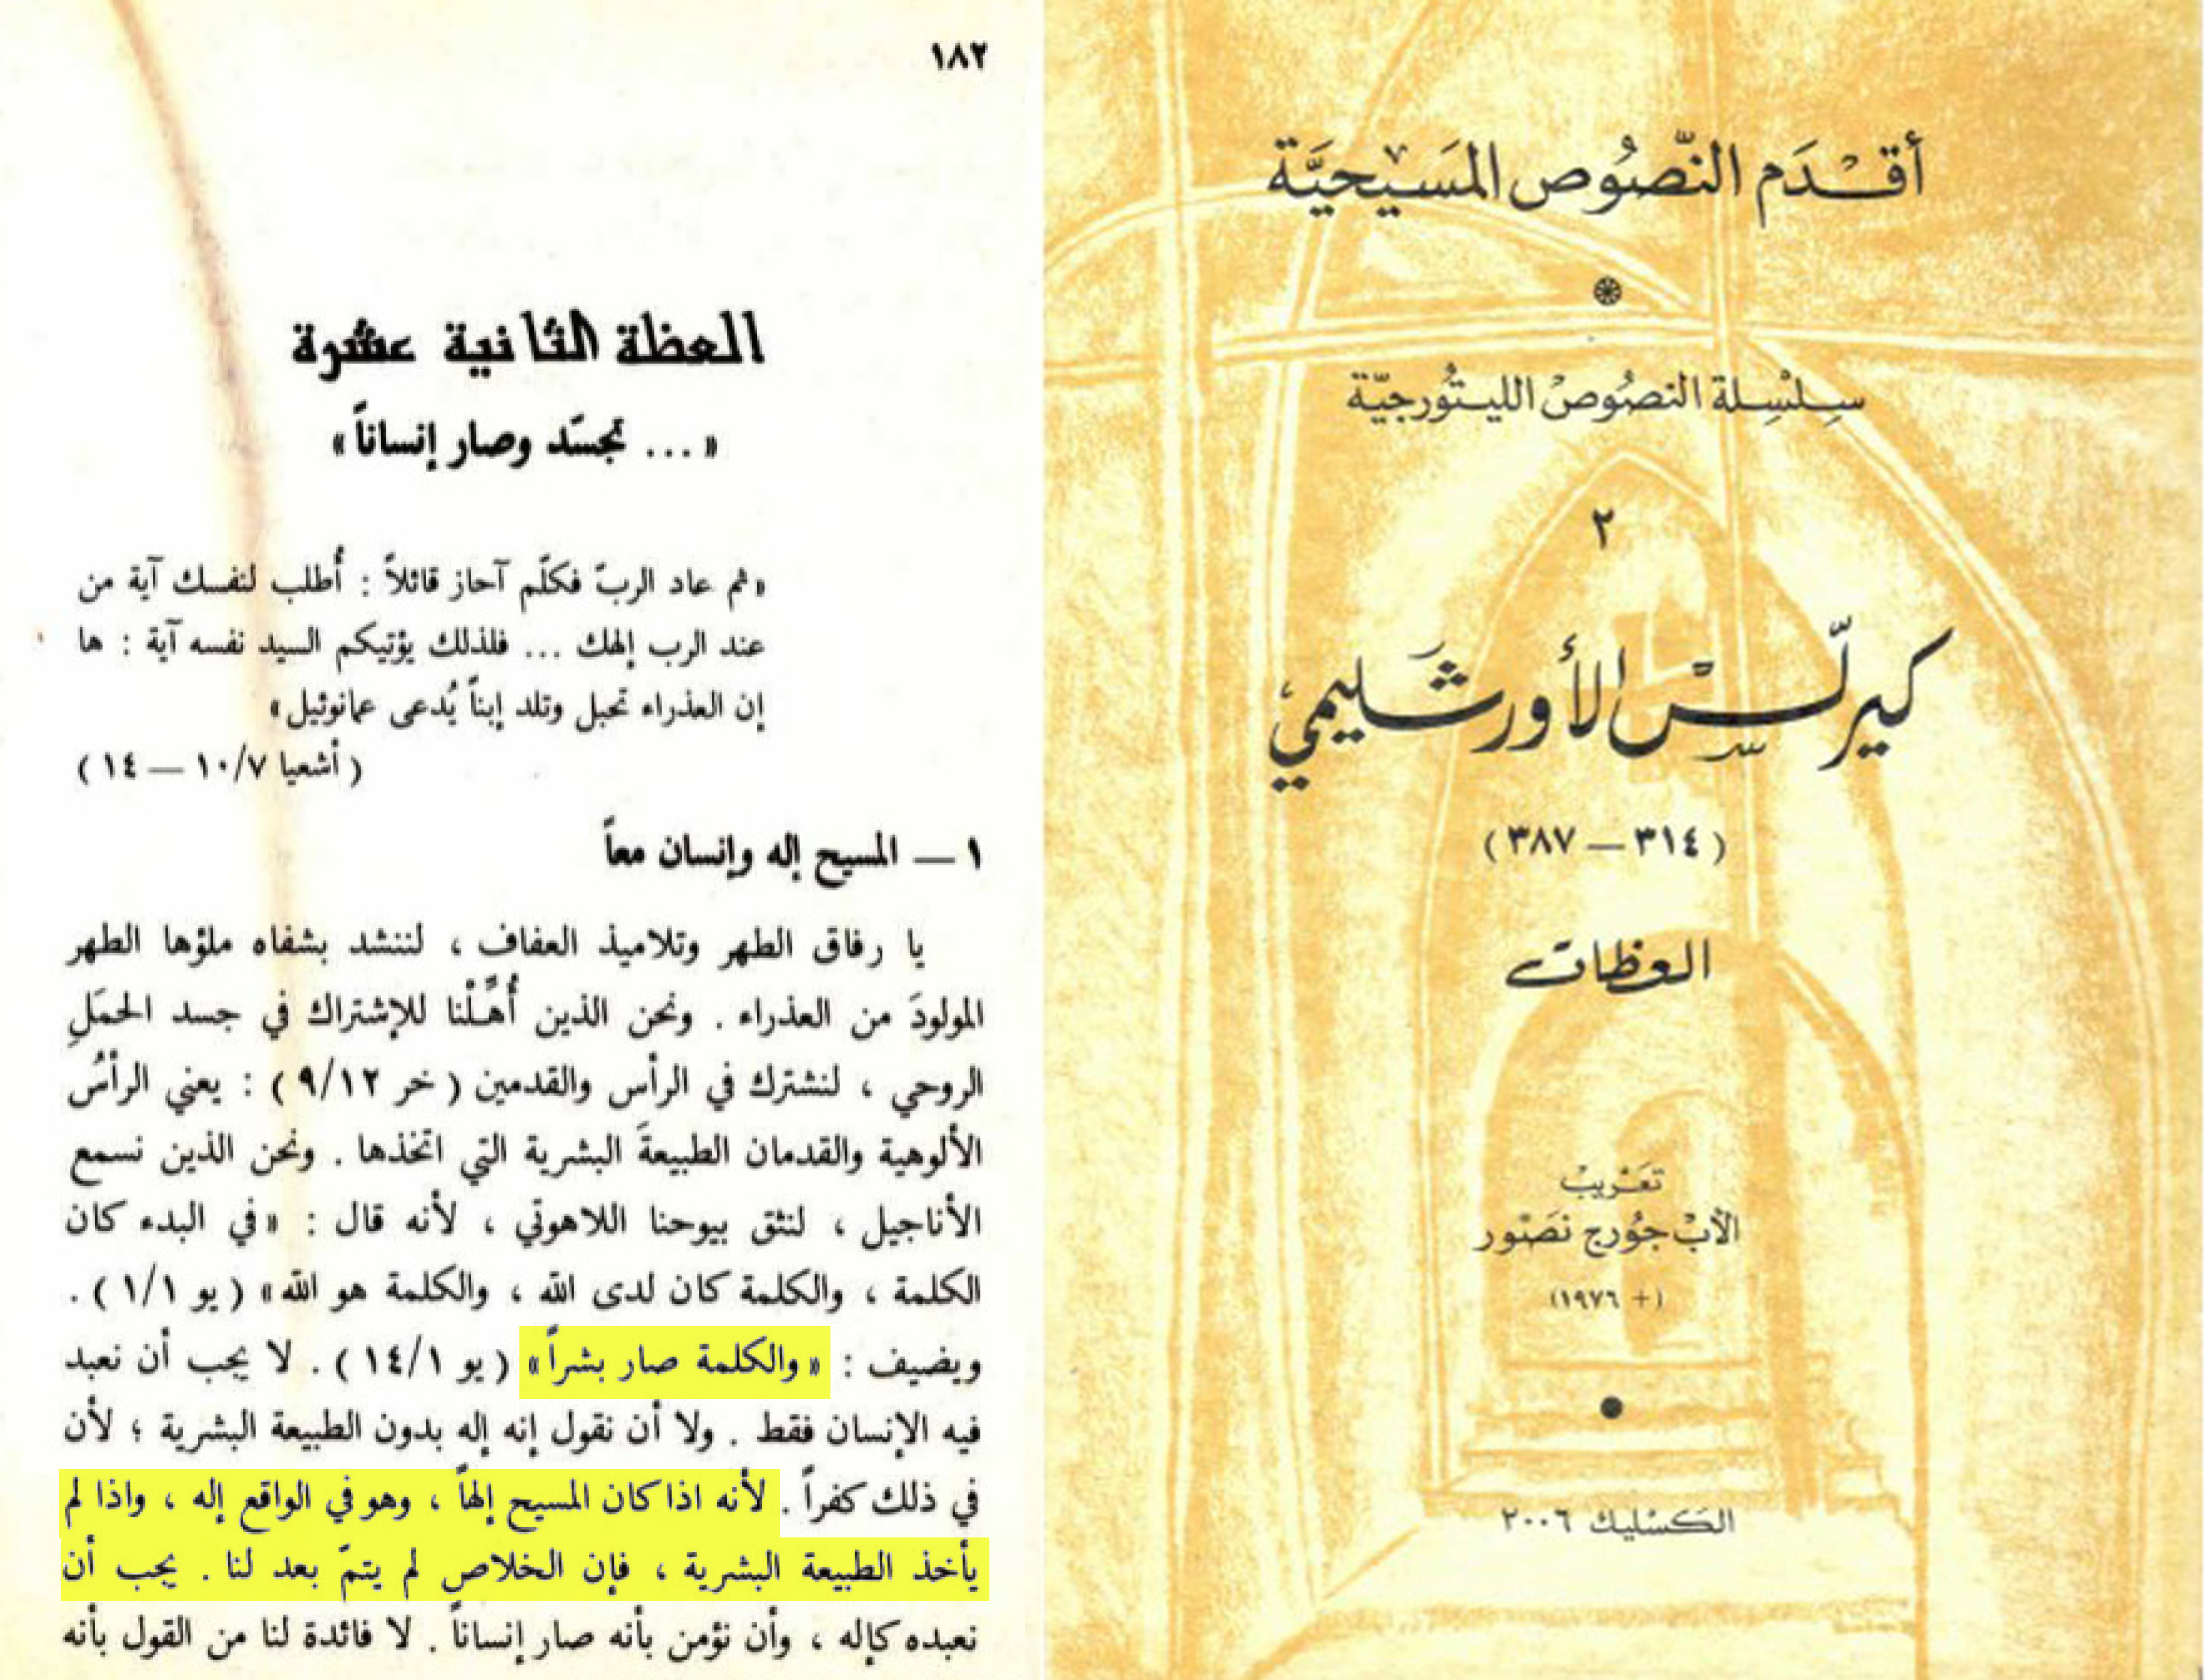 ١٨٢
العظة الثانية عشرة
« ... تجسّد وصار إنساناً »
«ثم عاد الربّ فكلّم آحاز قائلاً : أُطلب لنفسك آية من
عند الرب إلهك ... فلذلك يؤتيكم السيد نفسه آية : ها
إن العذراء تحبل وتلد إبناً يُدعى عمانوئيل»
( أشعيا ١٠/٧ — ١٤ )
١ — المسيح إله وإنسان معاً
يا رفاق الطهر وتلاميذ العفاف ، لننشد بشفاه ملؤها الطهر
المولودَ من العذراء . ونحن الذين أُهِّلْنا للإشتراك في جسد الحمَلِ
الروحي ، لنشترك في الرأس والقدمين ( خر ٩/١٢ ) : يعني الرأسُ
الألوهية والقدمان الطبيعةَ البشرية التي اتخذها . ونحن الذين نسمع
الأناجيل ، لنثق بيوحنا اللاهوتي ، لأنه قال : «في البدء كان
الكلمة ، والكلمة كان لدى الله ، والكلمة هو الله» ( يو ١/١ ) .
ويضيف : «والكلمة صار بشراً» ( يو ١٤/١ ) . لا يجب أن نعبد
فيه الإنسان فقط . ولا أن نقول إنه إله بدون الطبيعة البشرية ؛ لأن
في ذلك كفراً . لأنه اذا كان المسيح إلهاً ، وهو في الواقع إله ، واذا لم
يأخذ الطبيعة البشرية ، فإن الخلاص لم يتمّ بعد لنا . يجب أن
نعبده كإله ، وأن نؤمن بأنه صار إنساناً . لا فائدة لنا من القول بأنه
أقْدَم النّصُوص المَسيحيَّة
سِلْسِلة النصُوصْ الليتُورجيّة
٢
كيرلّسْ الأورشَليمي
( ٣١٤ — ٣٨٧ )
العظات
تعَريبْ
الأبْ جُورج نصَّور
(+ ١٩٧٦)
الكسْليك ٢٠٠٦